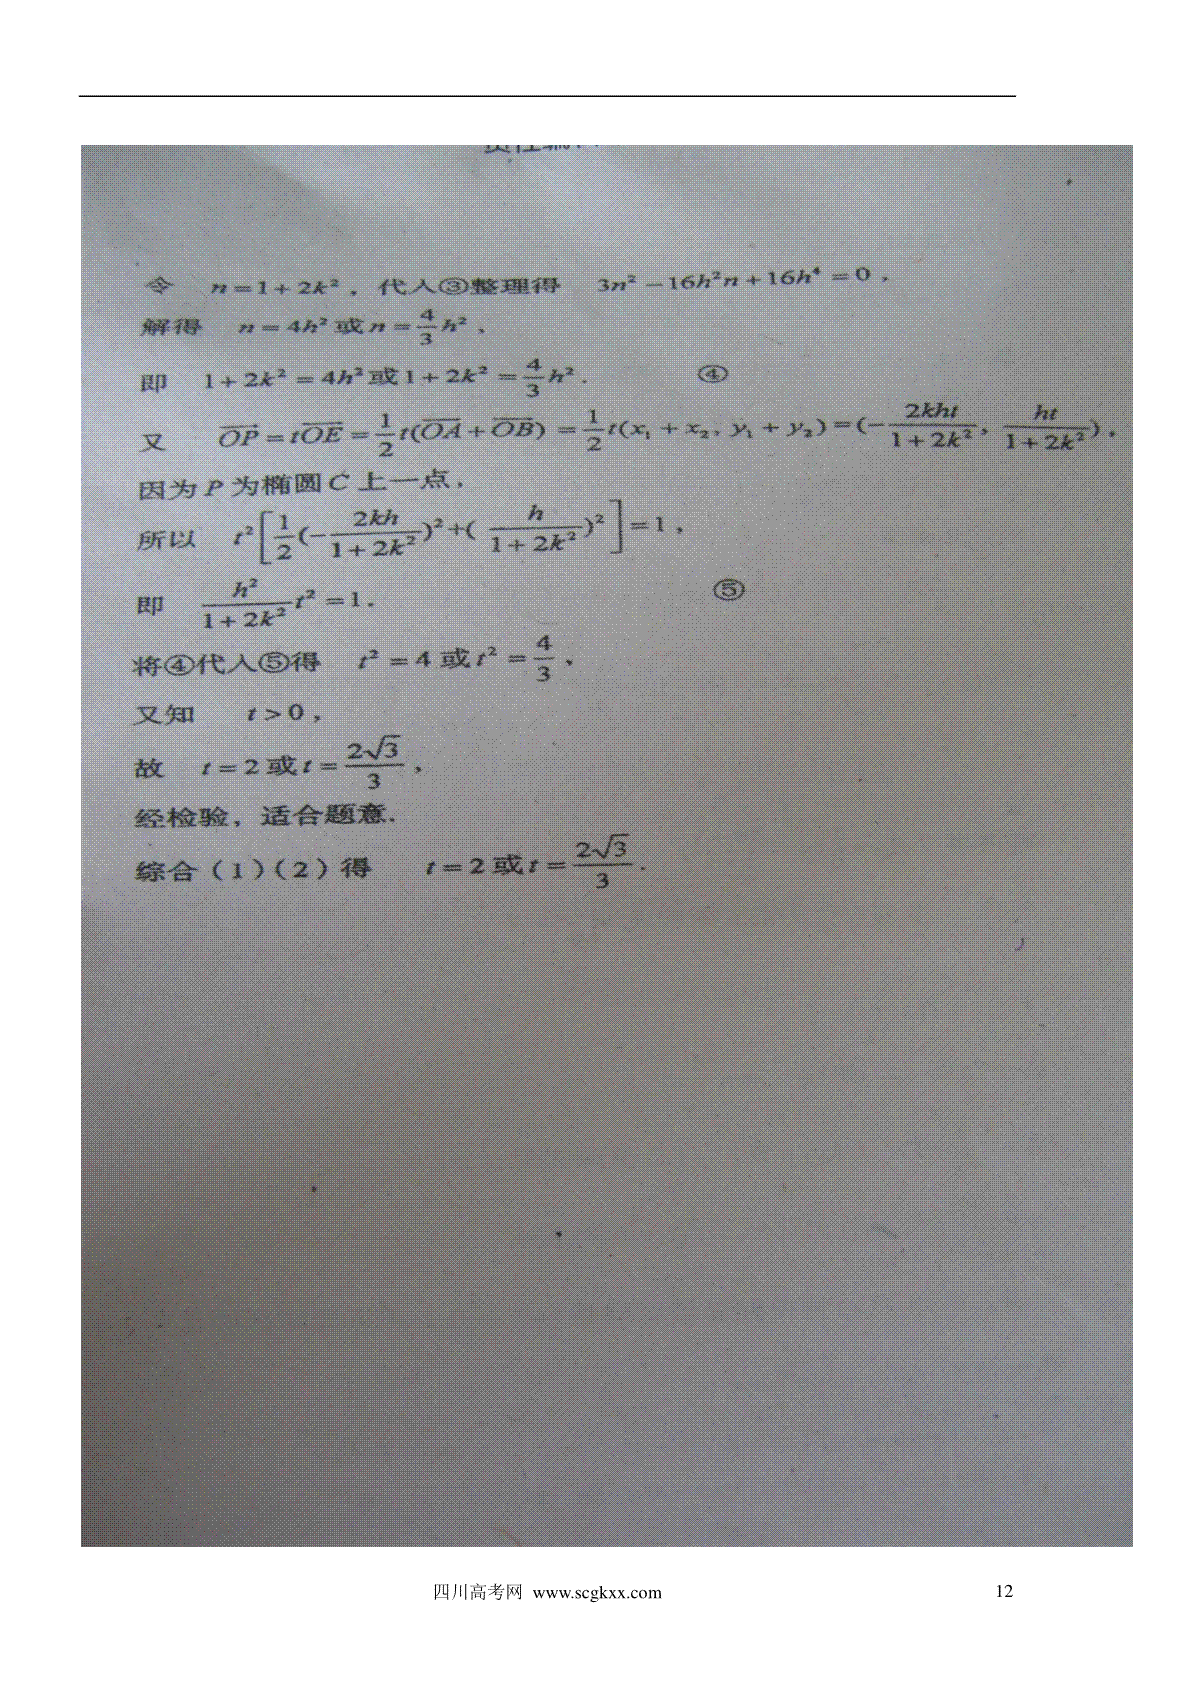 令 n=1+2k²，代入③整理得 3n²－16h²n＋16h⁴＝0，
解得 n＝4h²或n＝4/3 h²，
即 1＋2k²＝4h²或1＋2k²＝4/3 h². ④
又 OP＝tOE＝1/2 t(OA＋OB)＝1/2 t(x₁＋x₂, y₁＋y₂)＝(－2kht/(1＋2k²), ht/(1＋2k²))，
因为P为椭圆C上一点，
所以 t²[1/2(－2kh/(1＋2k²))²+(h/(1＋2k²))²]＝1，
即 h²/(1＋2k²) t²＝1. ⑤
将④代入⑤得 t²＝4或t²＝4/3，
又知 t>0，
故 t＝2或t＝2√3/3，
经检验，适合题意.
综合（1）（2）得 t＝2或t＝2√3/3.
四川高考网 www.scgkxx.com 12